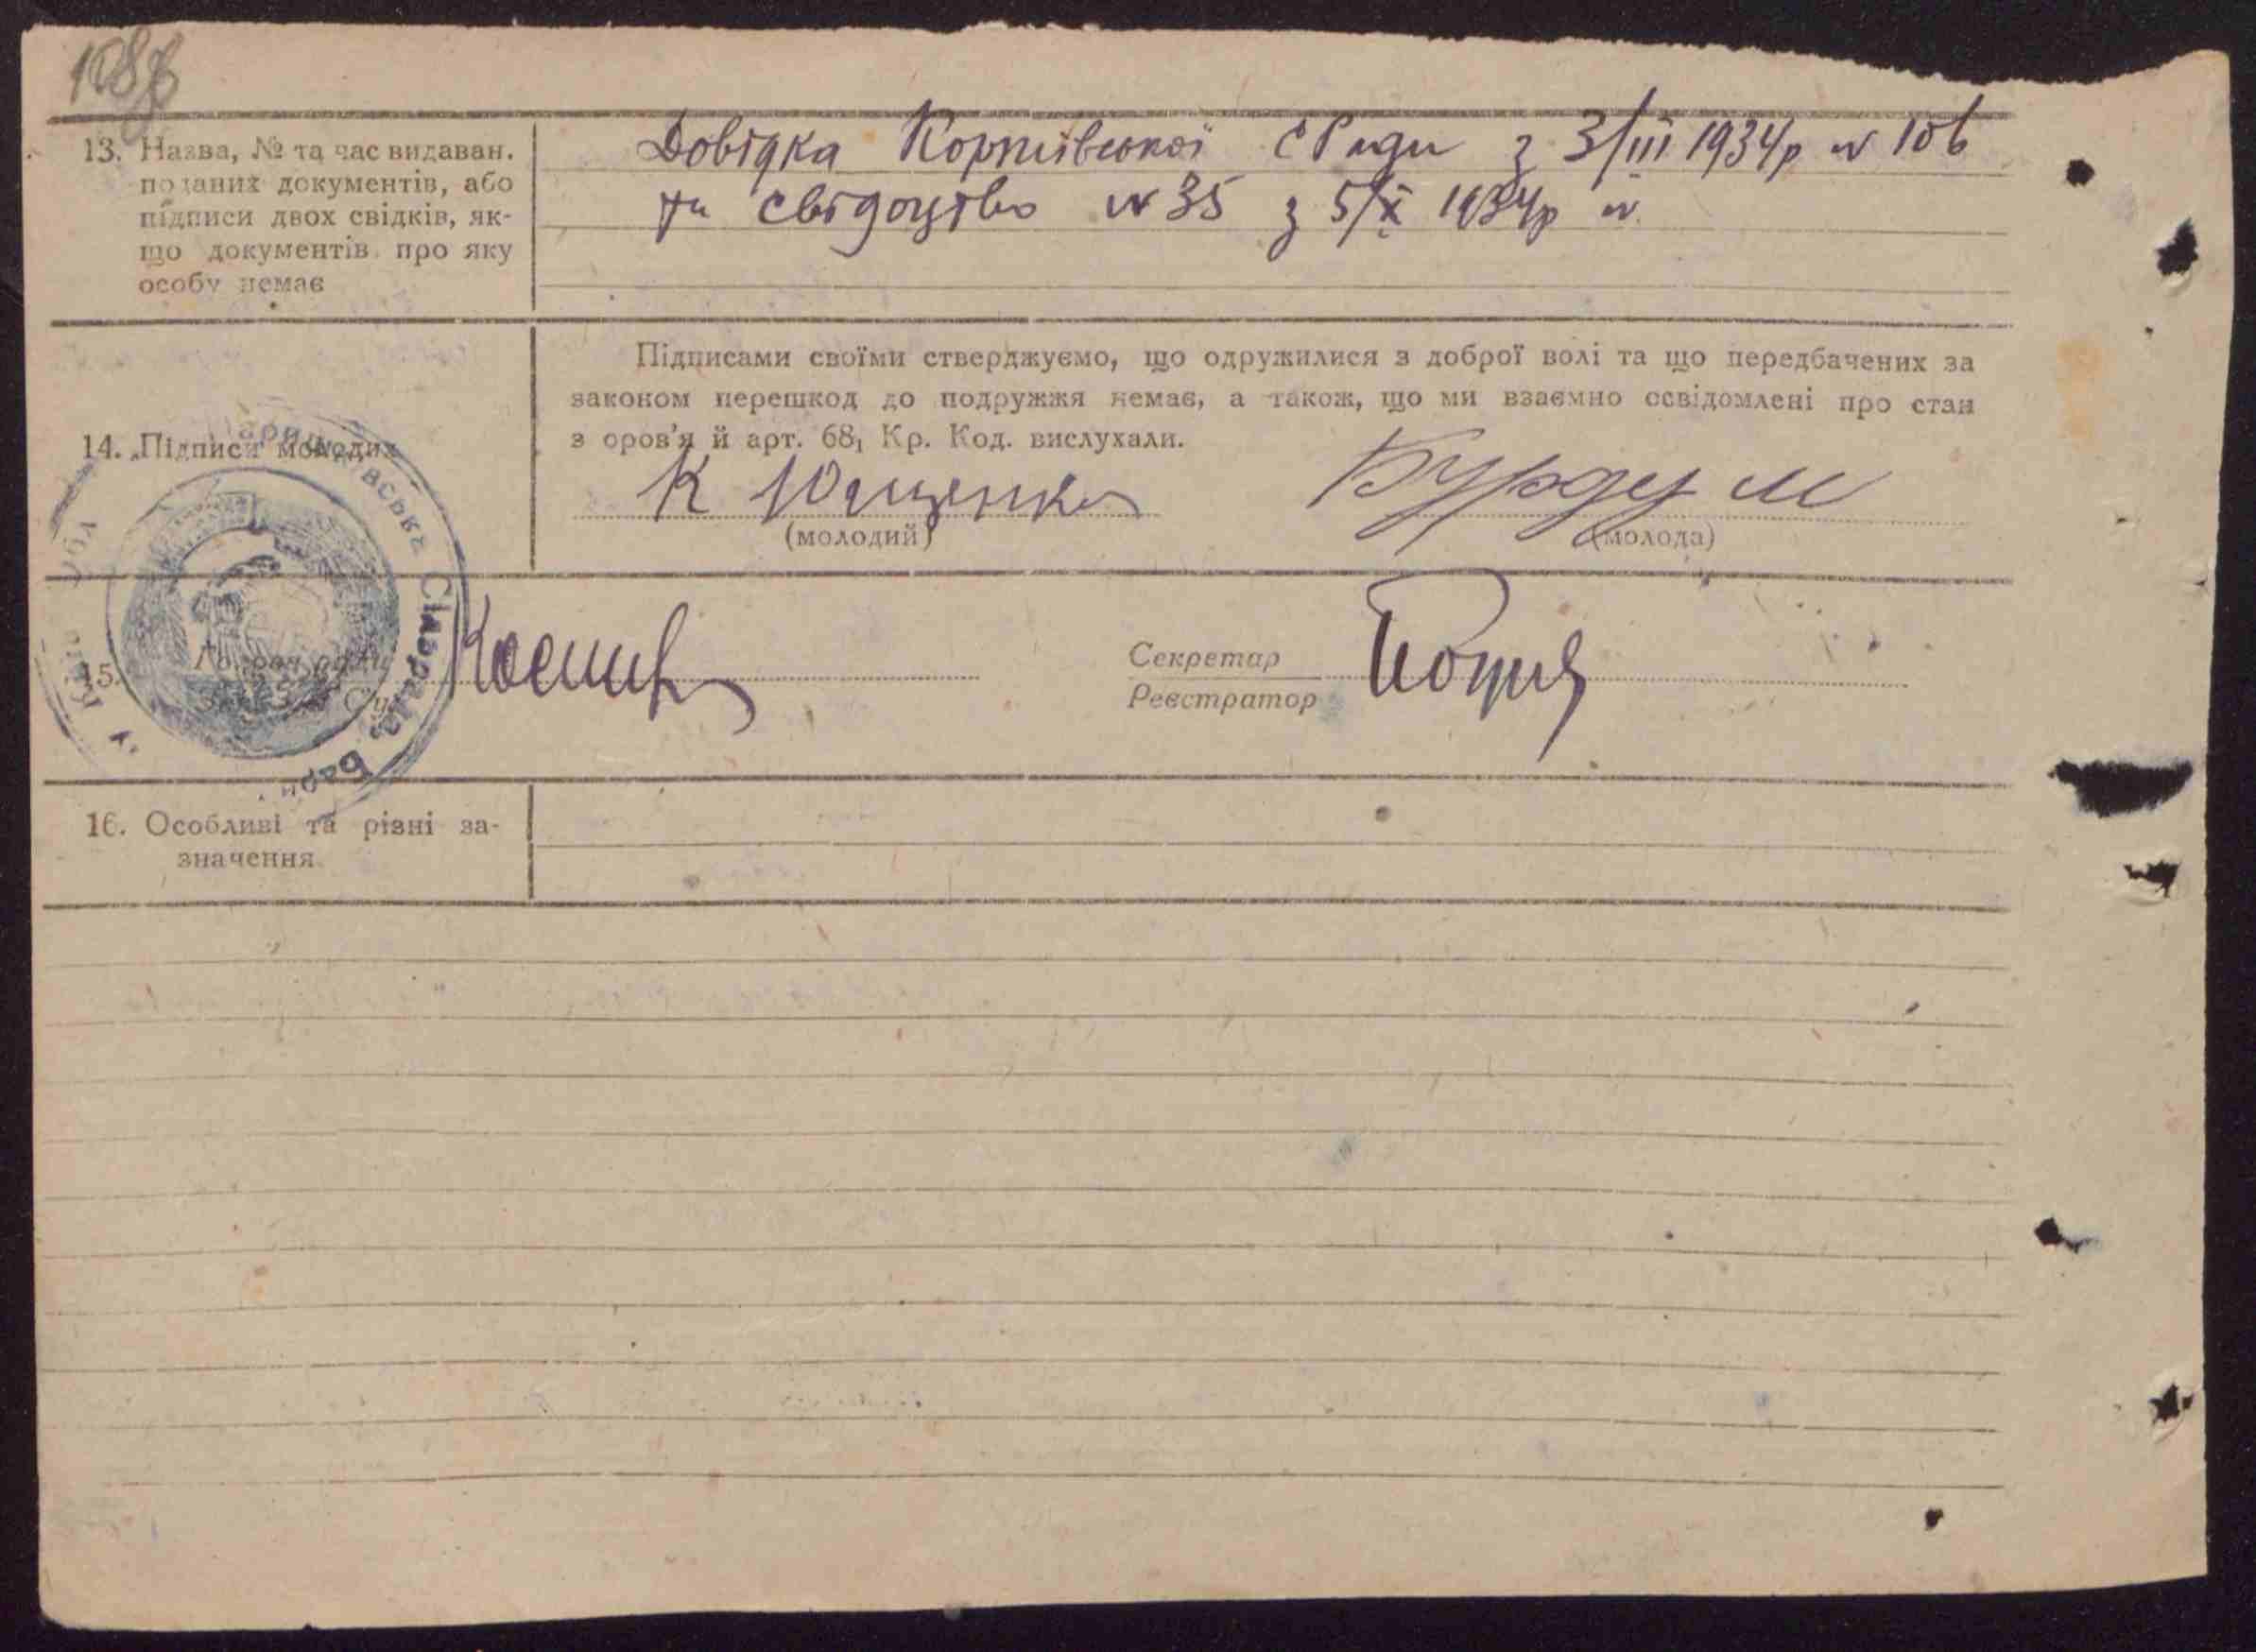 13. Назва, № та час видаван.
поданих документів, або
підписи двох свідків, як-
що документів про яку
особу немає
Довідка С Ради з 3/III 1934р № 106
та свідоцтво № 35 з 5/X 1934р №
Підписами своїми стверджуємо, що одружилися з доброї волі та що передбачених за
законом перешкод до подружжя немає, а також, що ми взаємно освідомлені про стан
з оров'я й арт. 68₁ Кр. Код. вислухали.
14. Підписи молодих
К Ющенко
Бурду М
(молодий)
(молода)
15.
Секретар
Реєстратор
Сільрада
16. Особливі та різні за-
значення